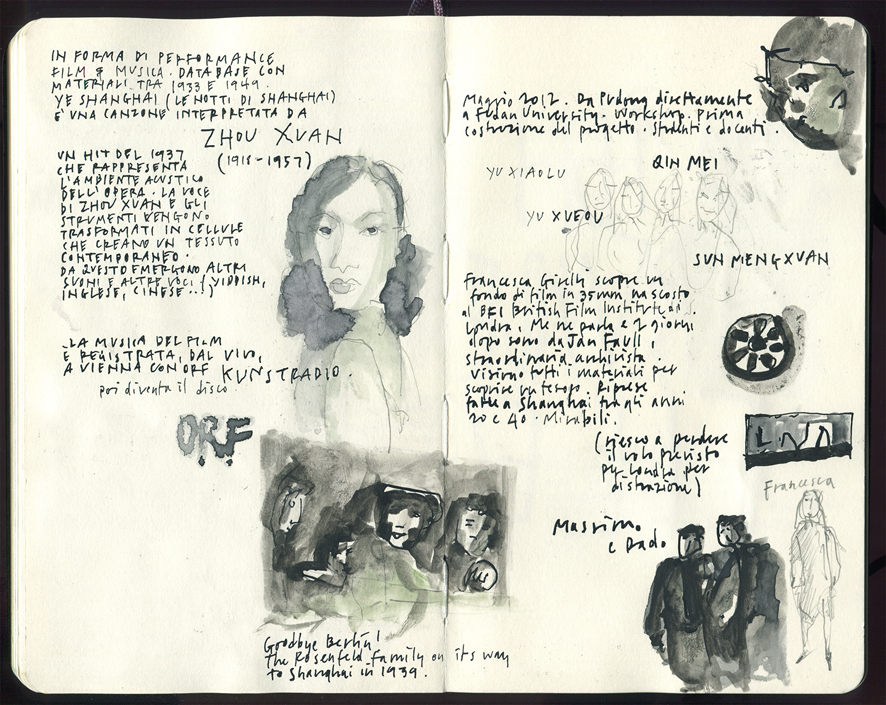 IN FORMA DI PERFORMANCE
FILM & MUSICA. DATABASE CON
MATERIALI TRA 1933 E 1949.
YE SHANGHAI (LE NOTTI DI SHANGHAI)
E' UNA CANZONE INTERPRETATA DA
ZHOU XUAN
(1918-1957)
UN HIT DEL 1937
CHE RAPPRESENTA
L'AMBIENTE ACUSTICO
DELL'OPERA. LA VOCE
DI ZHOU XUAN E GLI
STRUMENTI VENGONO
TRASFORMATI IN CELLULE
CHE CREANO UN TESSUTO
CONTEMPORANEO.
DA QUESTO EMERGONO ALTRI
SUONI E ALTRE VOCI (YIDDISH,
INGLESE, CINESE...)
.LA MUSICA DEL FILM
E REGISTRATA, DAL VIVO,
A VIENNA CON ORF KUNSTRADIO.
poi diventa il disco
ORF
Goodbye Berlin!
The Rosenfeld family on its way
to Shanghai in 1939.
Maggio 2012. Da Pudong direttamente
a Fudan University. Workshop. Prima
costruzione del progetto. Studenti e docenti.
YU XIAOLU
QIN MEI
YU XUEOU
SUN MENGXUAN
Francesca Girelli scopre un
fondo di film in 35mm, nascosto
al BFI British Film Institute di
Londra. Me ne parla e 2 giorni
dopo sono da Jan Faull,
straordinaria archivista.
Visiono tutti i materiali per
scoprire un tesoro. Riprese
fatte a Shanghai tra gli anni
20 e 40. Mirabili.
(riesco a perdere
il volo previsto
per Londra per
distrazione)
Francesca
Massimo
e Rado